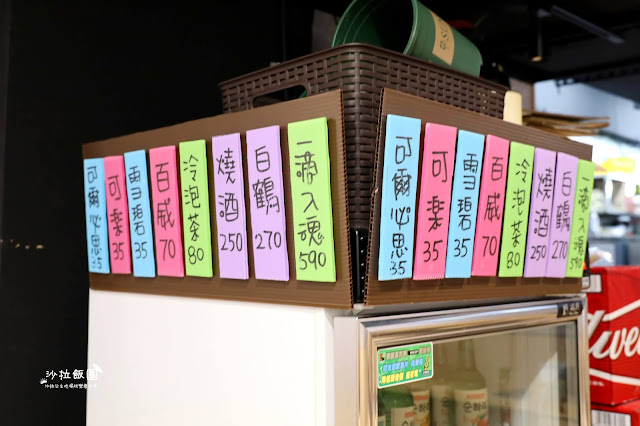 可爾必思 35
可樂 35
雪碧 35
百威 70
冷泡茶 80
燒酒 250
白鶴 270
一滴入魂 590
可爾必思 35
可樂 35
雪碧 35
百威 70
冷泡茶 80
燒酒 250
白鶴 270
一滴入魂 590
순하
沙拉飯圈